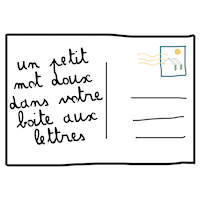 un petit
mot doux
dans votre
boite aux
lettres